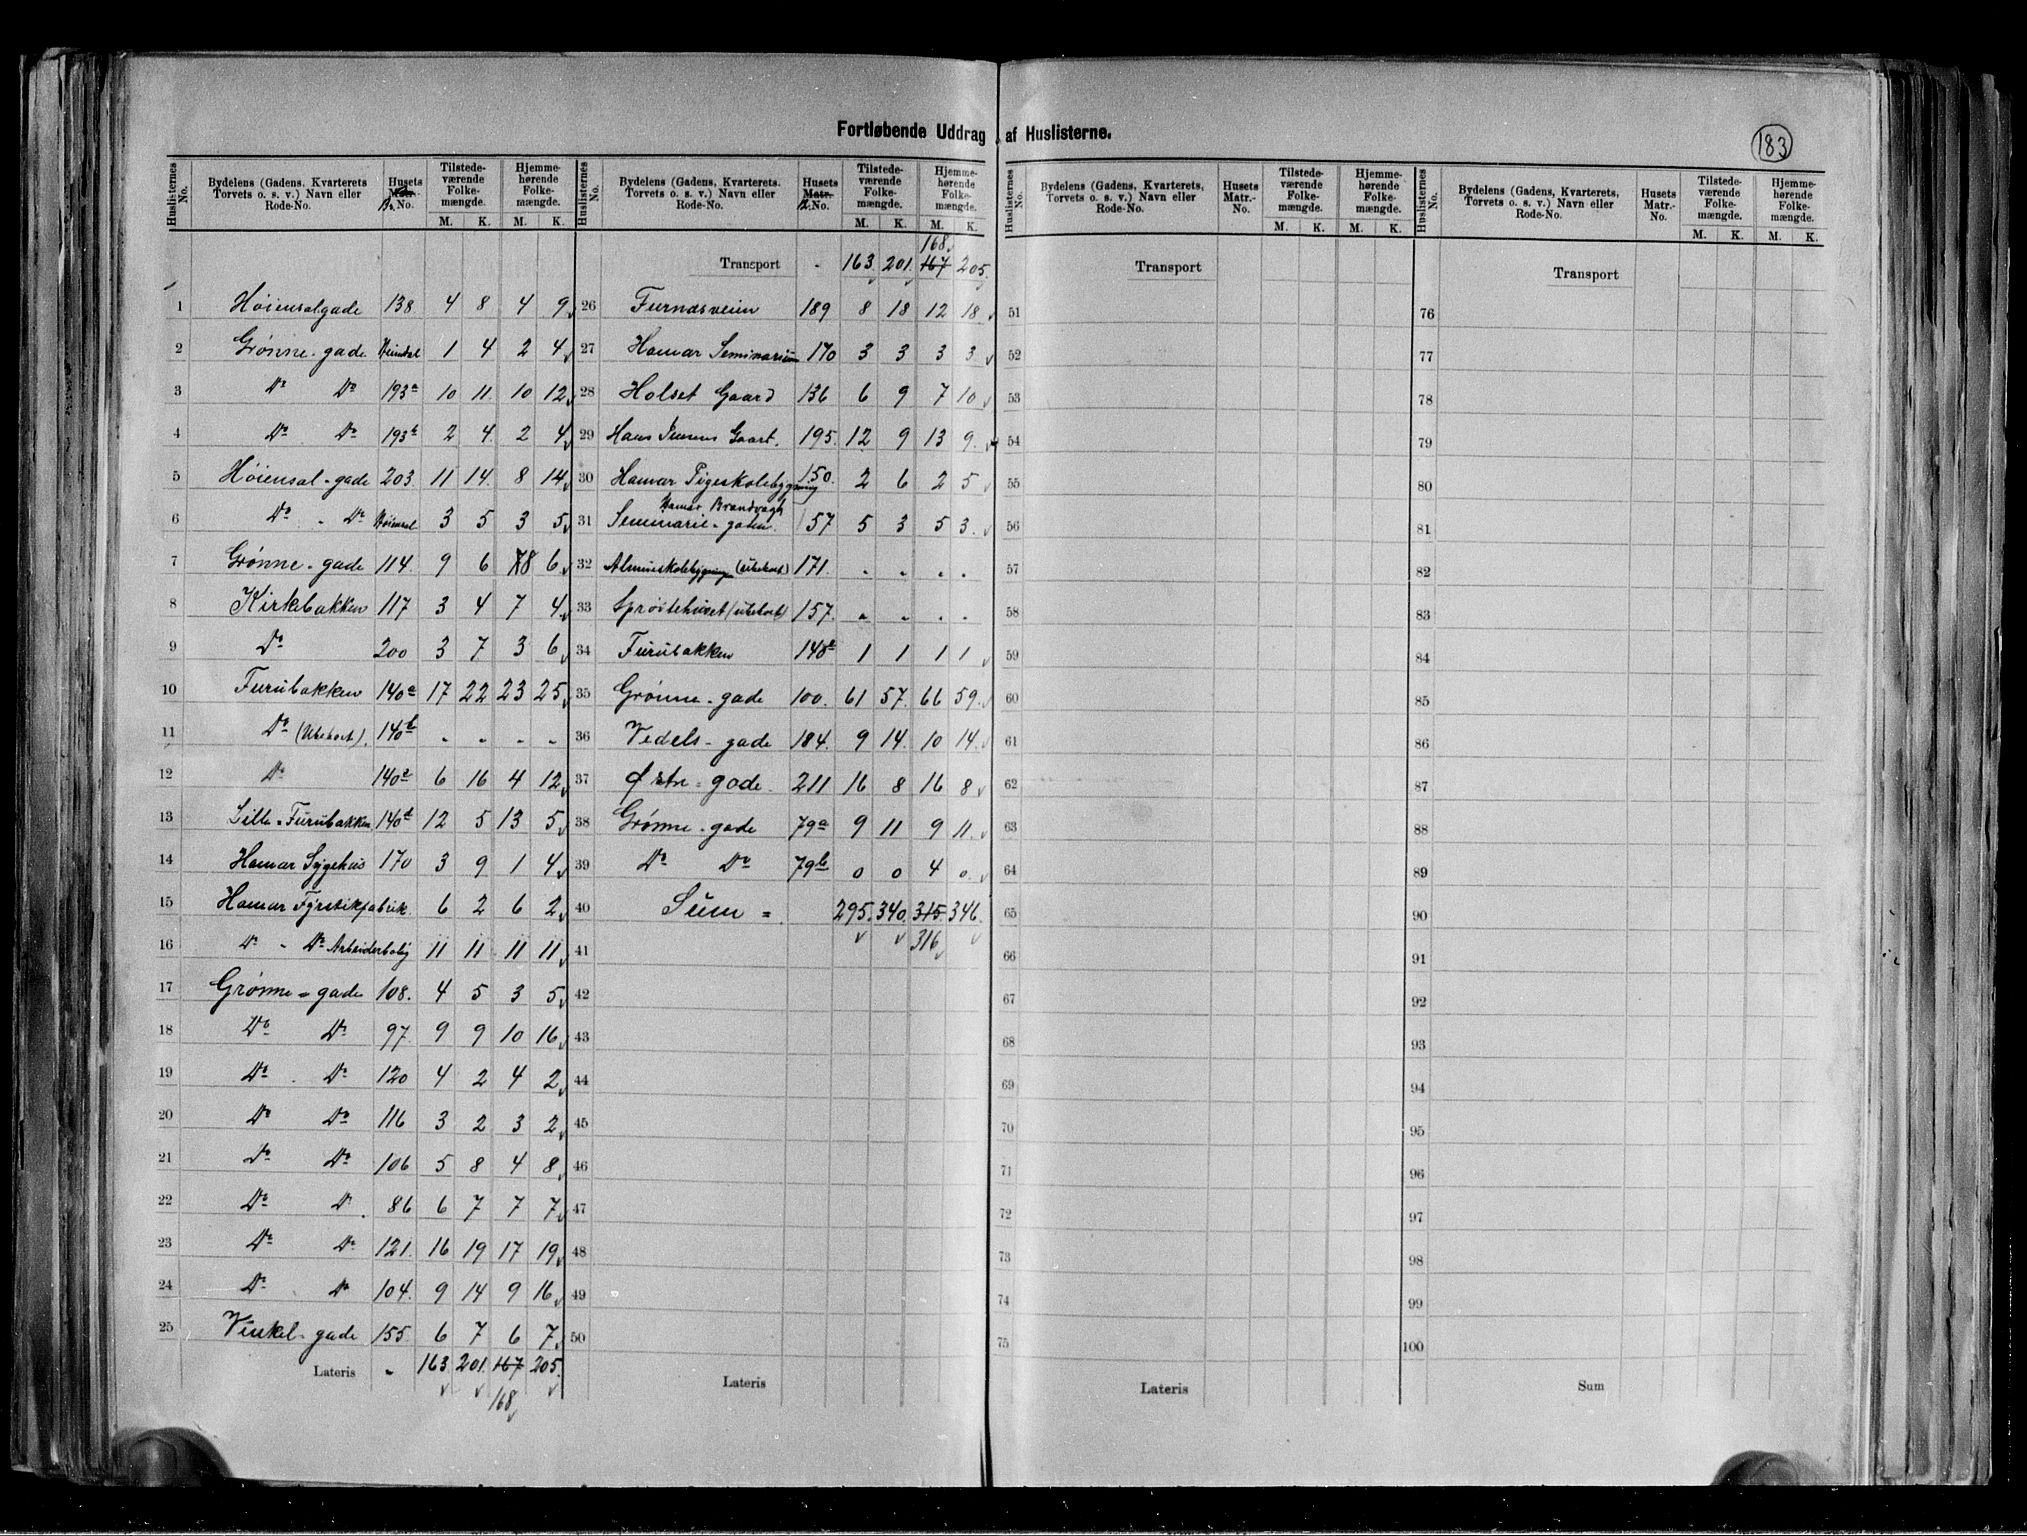 Fortløbende Uddrag af Huslisterne.
183
Huslisternes No. Bydelens (Gadens, Kvarterets Torvets o. s. v.) Navn eller Rode-No. Husets Matr. Br. No. Tilstedeværende Folkemængde. M. K. Hjemmehørende Folkemængde. M. K.
1 Høiensalgade 138 4 8 4 9
2 Grønne-gade Heimdal 1 4 2 4
3 Do Do 193a 10 11 10 12
4 Do Do 193b 2 4 2 4
5 Høiensal-gade 203 11 14 8 14
6 Do - Do Høiensal 3 5 3 5
7 Grønne-gade 114 9 6 8 6
8 Kirkebakken 117 3 4 7 4
9 Do 200 3 7 3 6
10 Furubakken 140a 17 22 23 25
11 Do (Ubeboet) 140b - - - -
12 Do 140c 6 16 4 12
13 Lille-Furubakken 140d 12 5 13 5
14 Hamar Sygehus 170 3 9 1 4
15 Hamar Fyrstikfabrik 6 2 6 2
16 Do - Do Arbeiderbolig 11 11 11 11
17 Grønne-gade 108 4 5 3 5
18 Do Do 97 9 9 10 16
19 Do Do 120 4 2 4 2
20 Do Do 116 3 2 3 2
21 Do Do 106 5 8 4 8
22 Do Do 86 6 7 7 7
23 Do Do 121 16 19 17 19
24 Do Do 104 9 14 9 16
25 Vinkel-gade 155 6 7 6 7
Lateris - 163 201 167 205
168
Huslisternes No. Bydelens (Gadens, Kvarterets. Torvets o. s. v.) Navn eller Rode-No. Husets Matr. B. No. Tilstedeværende Folkemængde. M. K. Hjemmehørende Folkemængde. M. K.
168
Transport - 163 201 167 205
26 Furnæsveien 189 8 18 12 18
27 Hamar Seminarium 170 3 3 3 3
28 Holset Gaard 136 6 9 7 10
29 Hans Gaard 195 12 9 13 9
30 Hamar Pigeskolebygning 150 2 6 2 5
Hamar Brandvagt
31 Seminarie-gaden 157 5 3 5 3
32 Almueskolebygning (ubeboet) 171 - - - -
33 Sprøitehuset (ubeboet) 157 - - - -
34 Furubakken 140e 1 1 1 1
35 Grønne-gade 100 61 57 66 59
36 Vedels-gade 184 9 14 10 14
37 Østre-gade 211 16 8 16 8
38 Grønne-gade 79a 9 11 9 11
39 Do Do 79b 0 0 4 0
40 Sum = 295 340 315 346
41 316
42
43
44
45
46
47
48
49
50
Lateris
Huslisternes No. Bydelens (Gadens, Kvarterets, Torvets o. s. v.) Navn eller Rode-No. Husets Matr.-No. Tilstedeværende Folkemængde. M. K. Hjemmehørende Folkemængde. M. K.
Transport
51
52
53
54
55
56
57
58
59
60
61
62
63
64
65
66
67
68
69
70
71
72
73
74
75
Lateris
Huslisternes No. Bydelens (Gadens, Kvarterets, Torvets o. s. v.) Navn eller Rode-No. Husets Matr.-No. Tilstedeværende Folkemængde. M. K. Hjemmehørende Folkemængde. M. K.
Transport
76
77
78
79
80
81
82
83
84
85
86
87
88
89
90
91
92
93
94
95
96
97
98
99
100
Sum